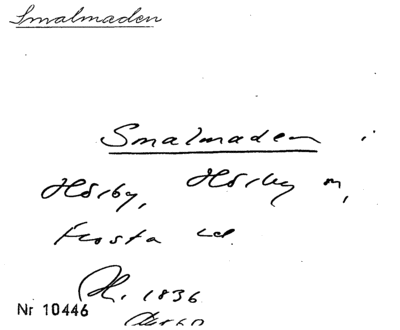 Smalmaden
Smalmaden i
Hörby, Hörby sn,
Frosta hd.
1836
Nr 10446